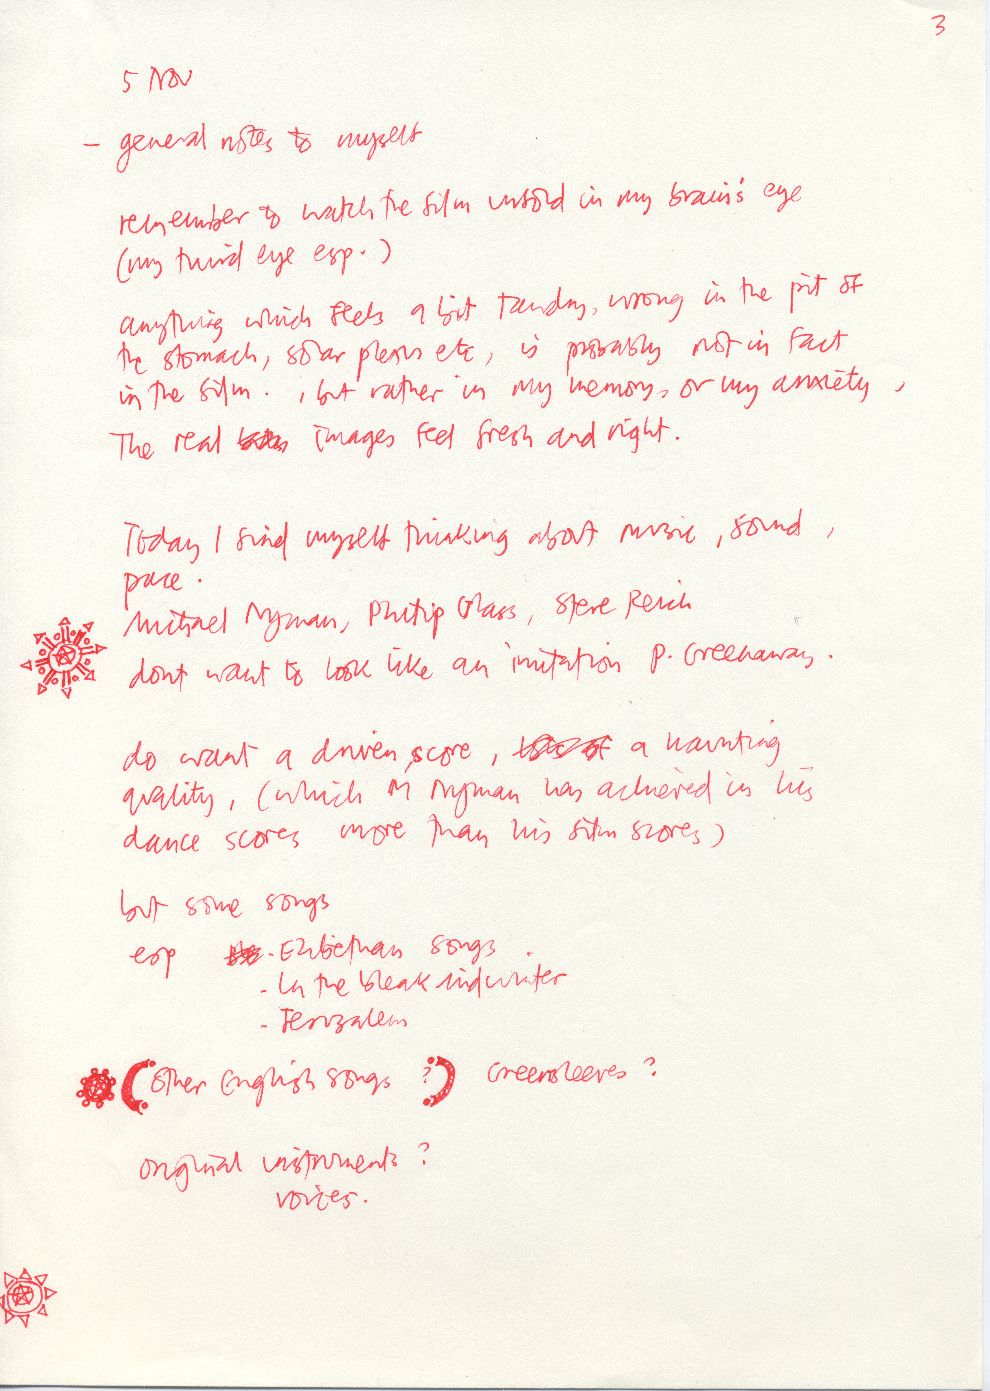 3
5 Nov
- general notes to myself
remember to watch the film unfold in my brain's eye
(my third eye esp.)
anything which feels a bit tawdry, wrong in the pit of
the stomach, solar plexus etc, is probably not in fact
in the film. , but rather in my memory, or my anxiety,
The real images feel fresh and right.
Today I find myself thinking about music, sound,
pace.
Michael Nyman, Philip Glass, Steve Reich
dont want to look like an imitation P. Greenaway.
do want a driven score, a haunting
quality, (which M Nyman has achieved in his
dance scores more than his film scores)
but some songs
esp - Elizbethan songs.
- In the bleak midwinter
- Jeruzalem
(other English songs ?) Greensleeves?
original instruments?
voices.